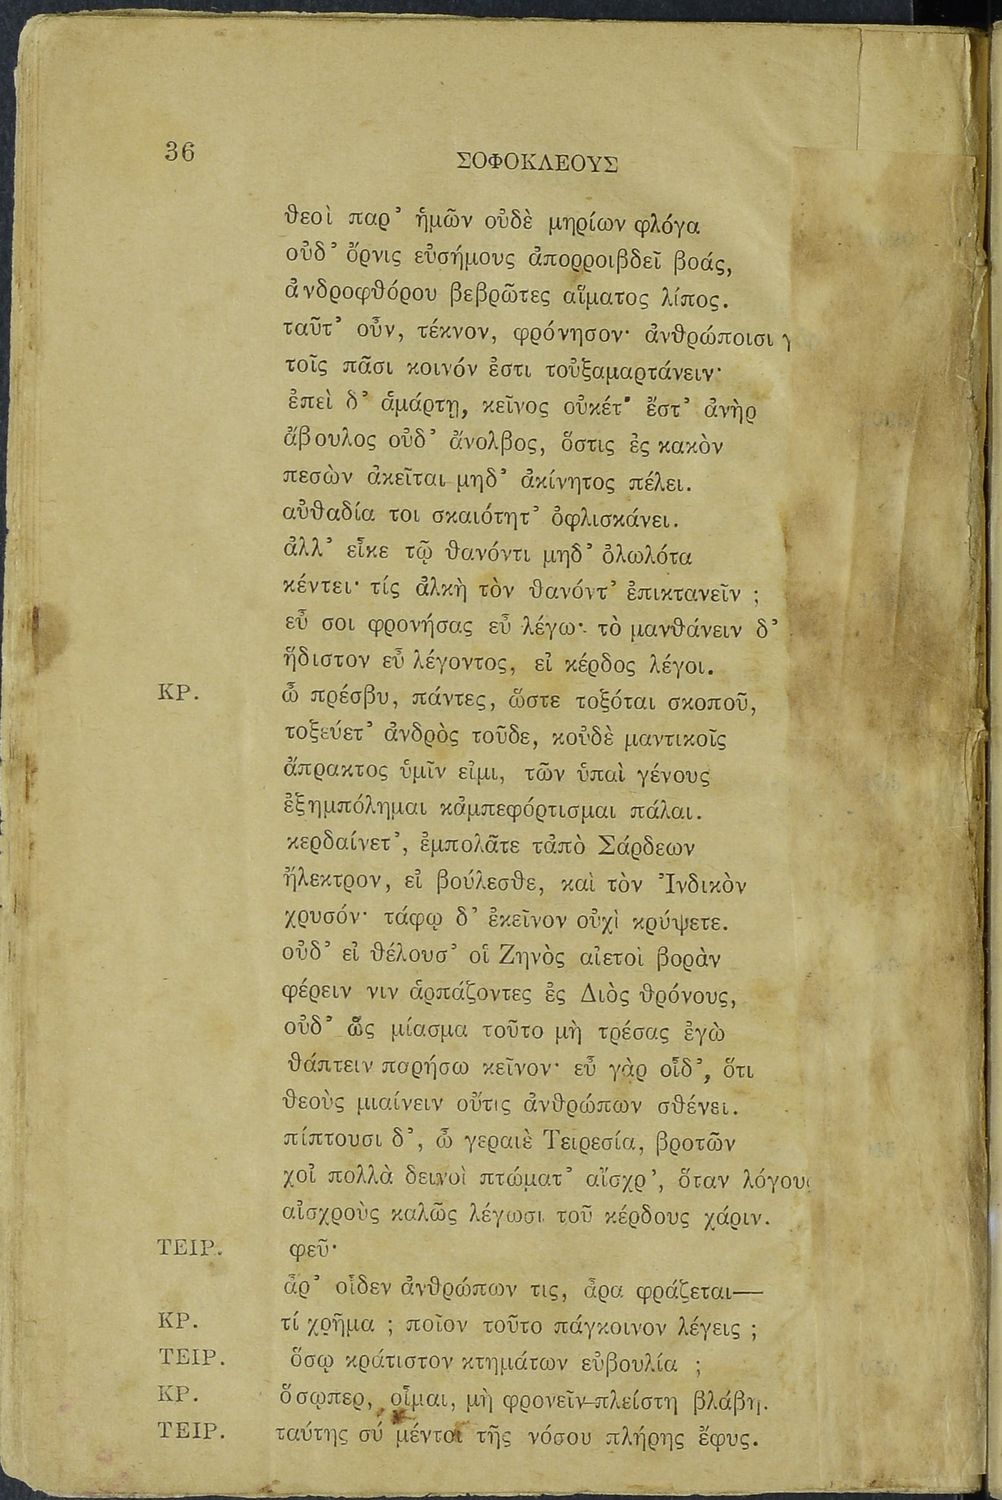 36
ΣΟΦΟΚΛΕΟΥΣ
θεοὶ παρ' ἡμῶν οὐδὲ μηρίων φλόγα
οὐδ' ὄρνις εὐσήμους ἀπορροιβδεῖ βοάς,
ἀνδροφθόρου βεβρῶτες αἵματος λίπος.
ταῦτ' οὖν, τέκνον, φρόνησον· ἀνθρώποισι
τοῖς πᾶσι κοινόν ἐστι τοὐξαμαρτάνειν·
ἐπεὶ δ' ἁμάρτῃ, κεῖνος οὐκέτ' ἔστ' ἀνὴρ
ἄβουλος οὐδ' ἄνολβος, ὅστις ἐς κακὸν
πεσὼν ἀκεῖται μηδ' ἀκίνητος πέλει.
αὐθαδία τοι σκαιότητ' ὀφλισκάνει.
ἀλλ' εἶκε τῷ θανόντι μηδ' ὀλωλότα
κέντει· τίς ἀλκὴ τὸν θανόντ' ἐπικτανεῖν ;
εὖ σοι φρονήσας εὖ λέγω· τὸ μανθάνειν δ'
ἥδιστον εὖ λέγοντος, εἰ κέρδος λέγοι.
ΚΡ. ὦ πρέσβυ, πάντες, ὥστε τοξόται σκοποῦ,
τοξεύετ' ἀνδρὸς τοῦδε, κοὐδὲ μαντικοῖς
ἄπρακτος ὑμῖν εἰμι, τῶν ὑπαὶ γένους
ἐξημπόλημαι κἀμπεφόρτισμαι πάλαι.
κερδαίνετ', ἐμπολᾶτε τἀπὸ Σάρδεων
ἤλεκτρον, εἰ βούλεσθε, καὶ τὸν Ἰνδικὸν
χρυσόν· τάφῳ δ' ἐκεῖνον οὐχὶ κρύψετε.
οὐδ' εἰ θέλουσ' οἱ Ζηνὸς αἰετοὶ βορὰν
φέρειν νιν ἁρπάζοντες ἐς Διὸς θρόνους,
οὐδ' ὣς μίασμα τοῦτο μὴ τρέσας ἐγὼ
θάπτειν παρήσω κεῖνον· εὖ γὰρ οἶδ', ὅτι
θεοὺς μιαίνειν οὔτις ἀνθρώπων σθένει.
πίπτουσι δ', ὦ γεραιὲ Τειρεσία, βροτῶν
χοἰ πολλὰ δεινοὶ πτώματ' αἴσχρ', ὅταν λόγους
αἰσχροὺς καλῶς λέγωσι τοῦ κέρδους χάριν.
ΤΕΙΡ. φεῦ·
ἆρ' οἶδεν ἀνθρώπων τις, ἆρα φράζεται—
ΚΡ. τί χρῆμα ; ποῖον τοῦτο πάγκοινον λέγεις ;
ΤΕΙΡ. ὅσῳ κράτιστον κτημάτων εὐβουλία ;
ΚΡ. ὅσῳπερ, οἶμαι, μὴ φρονεῖν πλείστη βλάβη.
ΤΕΙΡ. ταύτης σύ μέντοι τῆς νόσου πλήρης ἔφυς.